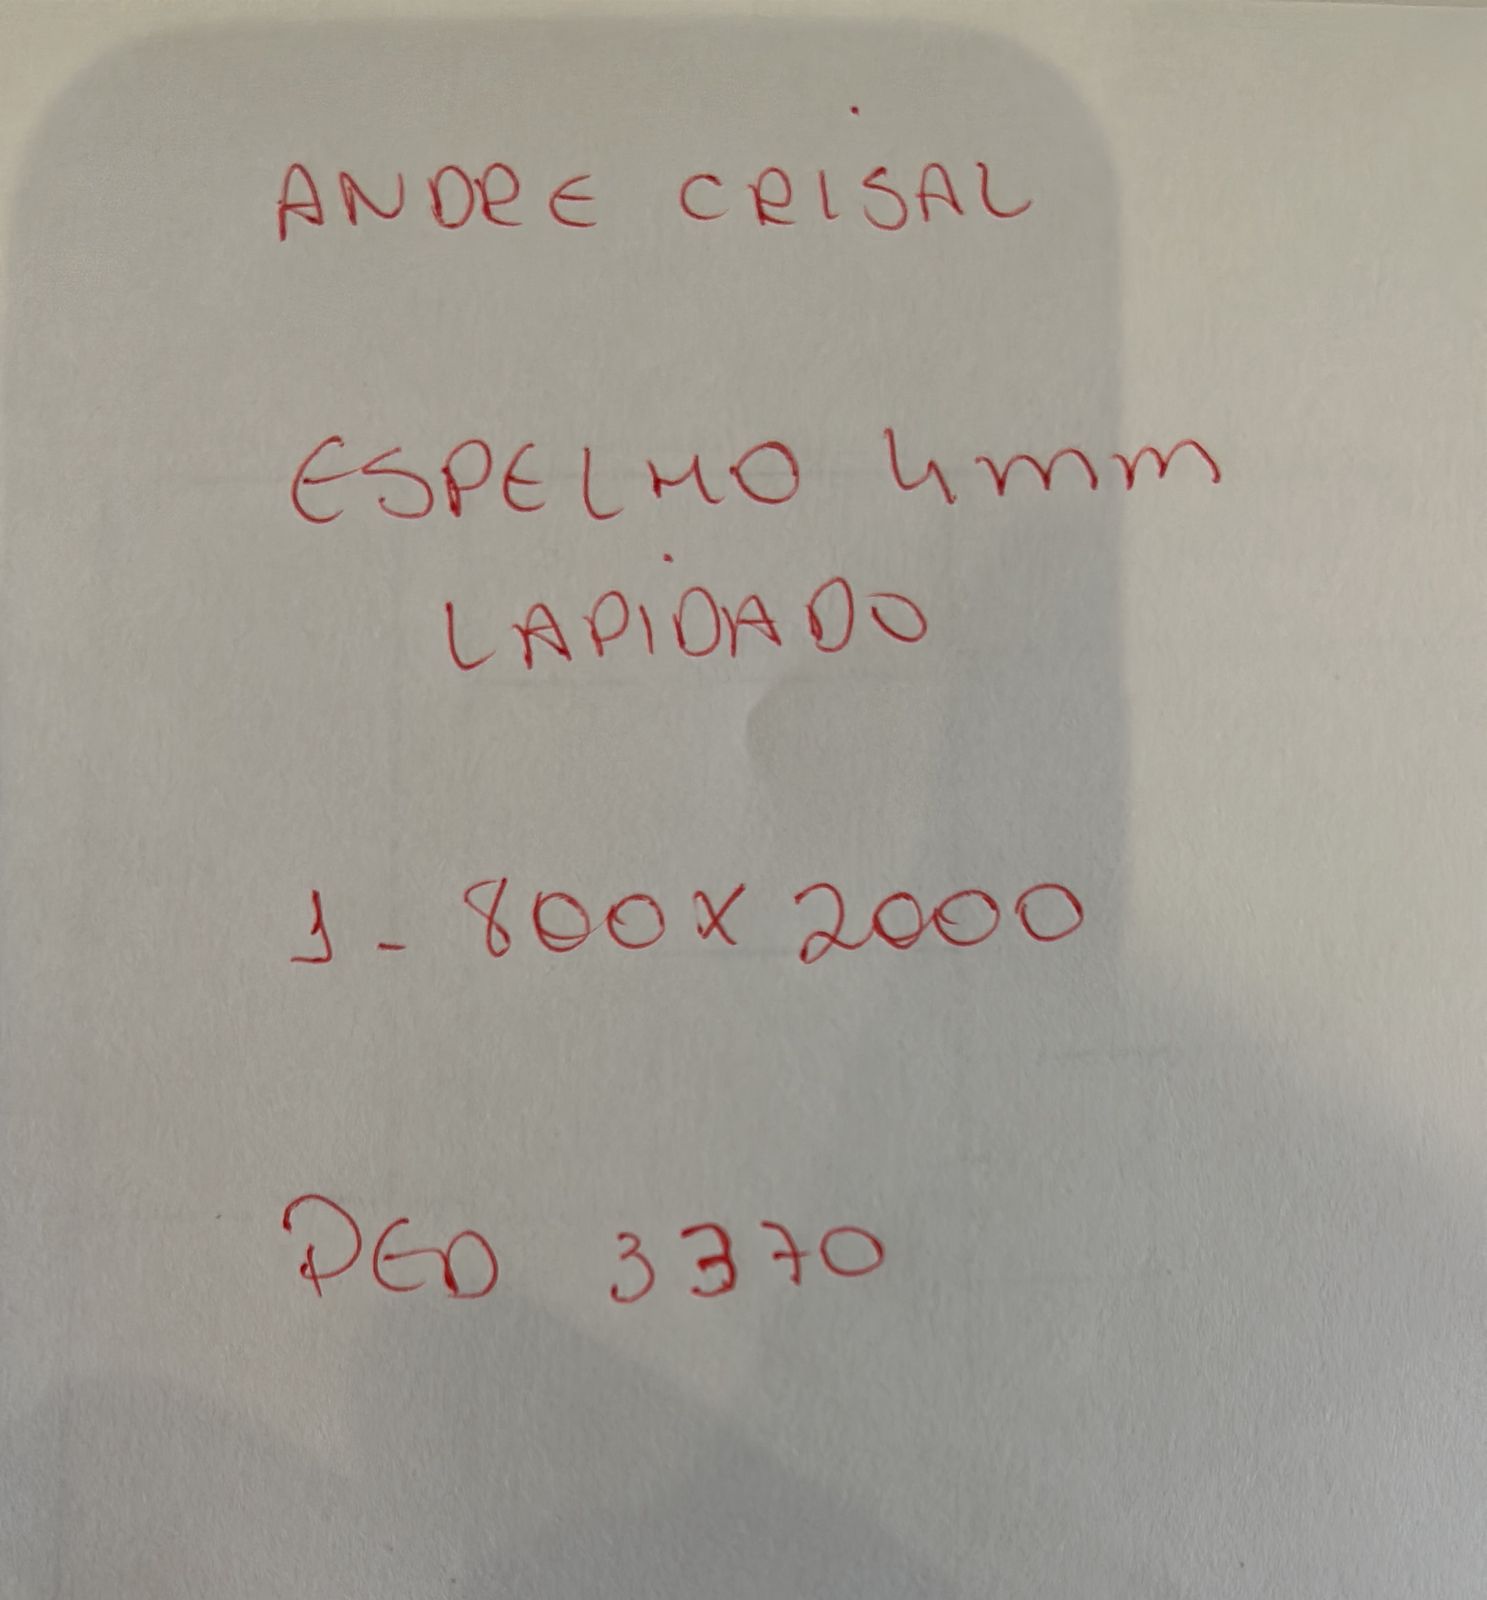 ANDRE CRISAL
ESPELHO 4mm
LAPIDADO
1 - 800 x 2000
PED 3370